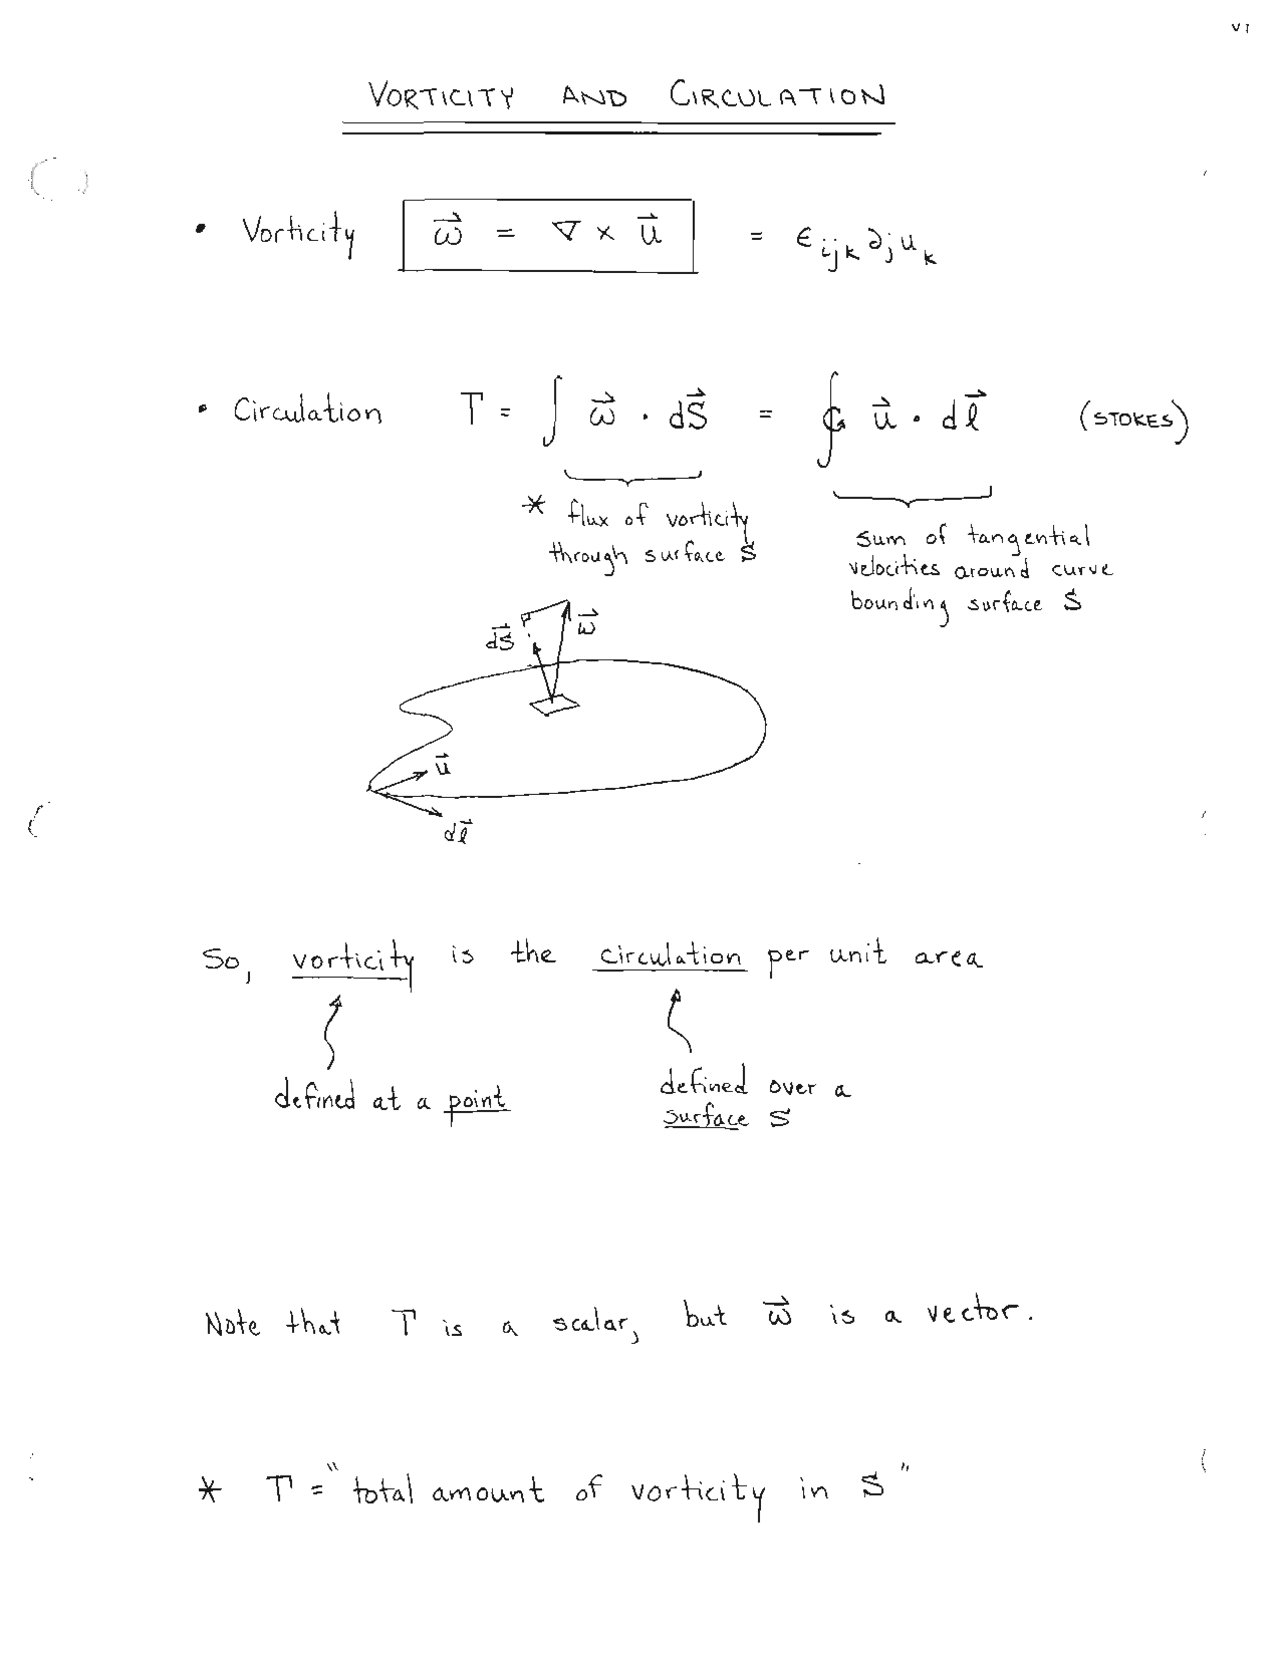 V1
VORTICITY AND CIRCULATION
• Vorticity ω⃗ = ∇ × u⃗ = ϵ_ijk ∂_j u_k
• Circulation Γ = ∫ ω⃗ · dS⃗ = ∮ u⃗ · dl⃗ (STOKES)
* flux of vorticity
through surface S
sum of tangential
velocities around curve
bounding surface S
dS⃗ ω⃗
u⃗
dl⃗
So, vorticity is the circulation per unit area
defined at a point
defined over a
surface S
Note that Γ is a scalar, but ω⃗ is a vector.
* Γ = "total amount of vorticity in S"